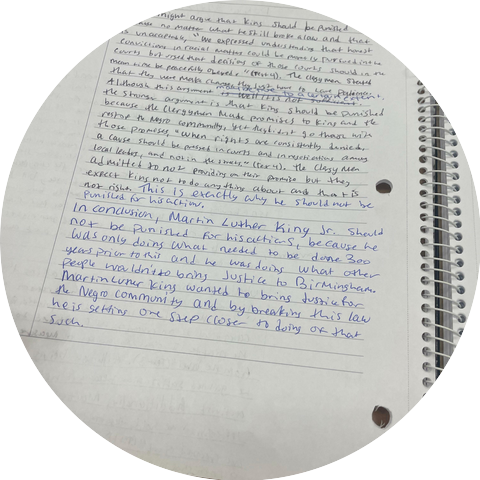 might argue that King should be punished
no matter what he still broke a law and that
is unacceptable, "We expressed understanding that honest
convictions in racial matters could be properly pursued in the
courts but urged that decisions of those courts should in the
mean time be peacefully obeyed" The Clergymen
that they were
Although this argument
the stronger argument is that King should be punished
because the Clergymen Made promises to King and the
Negro community, yet they dont go through with
those promises, "When rights are consistently denied,
a cause should be pressed in courts and in negotiations among
local leaders, and not in the streets," The Clergy Men
admitted to not providing on their promise but they
expect King not to do anything about and that is
not right. This is exactly why he should not be
punished for his actions.
In conclusion, Martin Luther King Jr. should
not be punished for his actions, because he
was only doing what needed to be done 300
years prior to this and he was doing what other
people wouldn't to bring Justice to Birmingham.
Martin Luther King wanted to bring Justice for
the Negro community and by breaking this law
he is setting one step closer to doing of that
such.